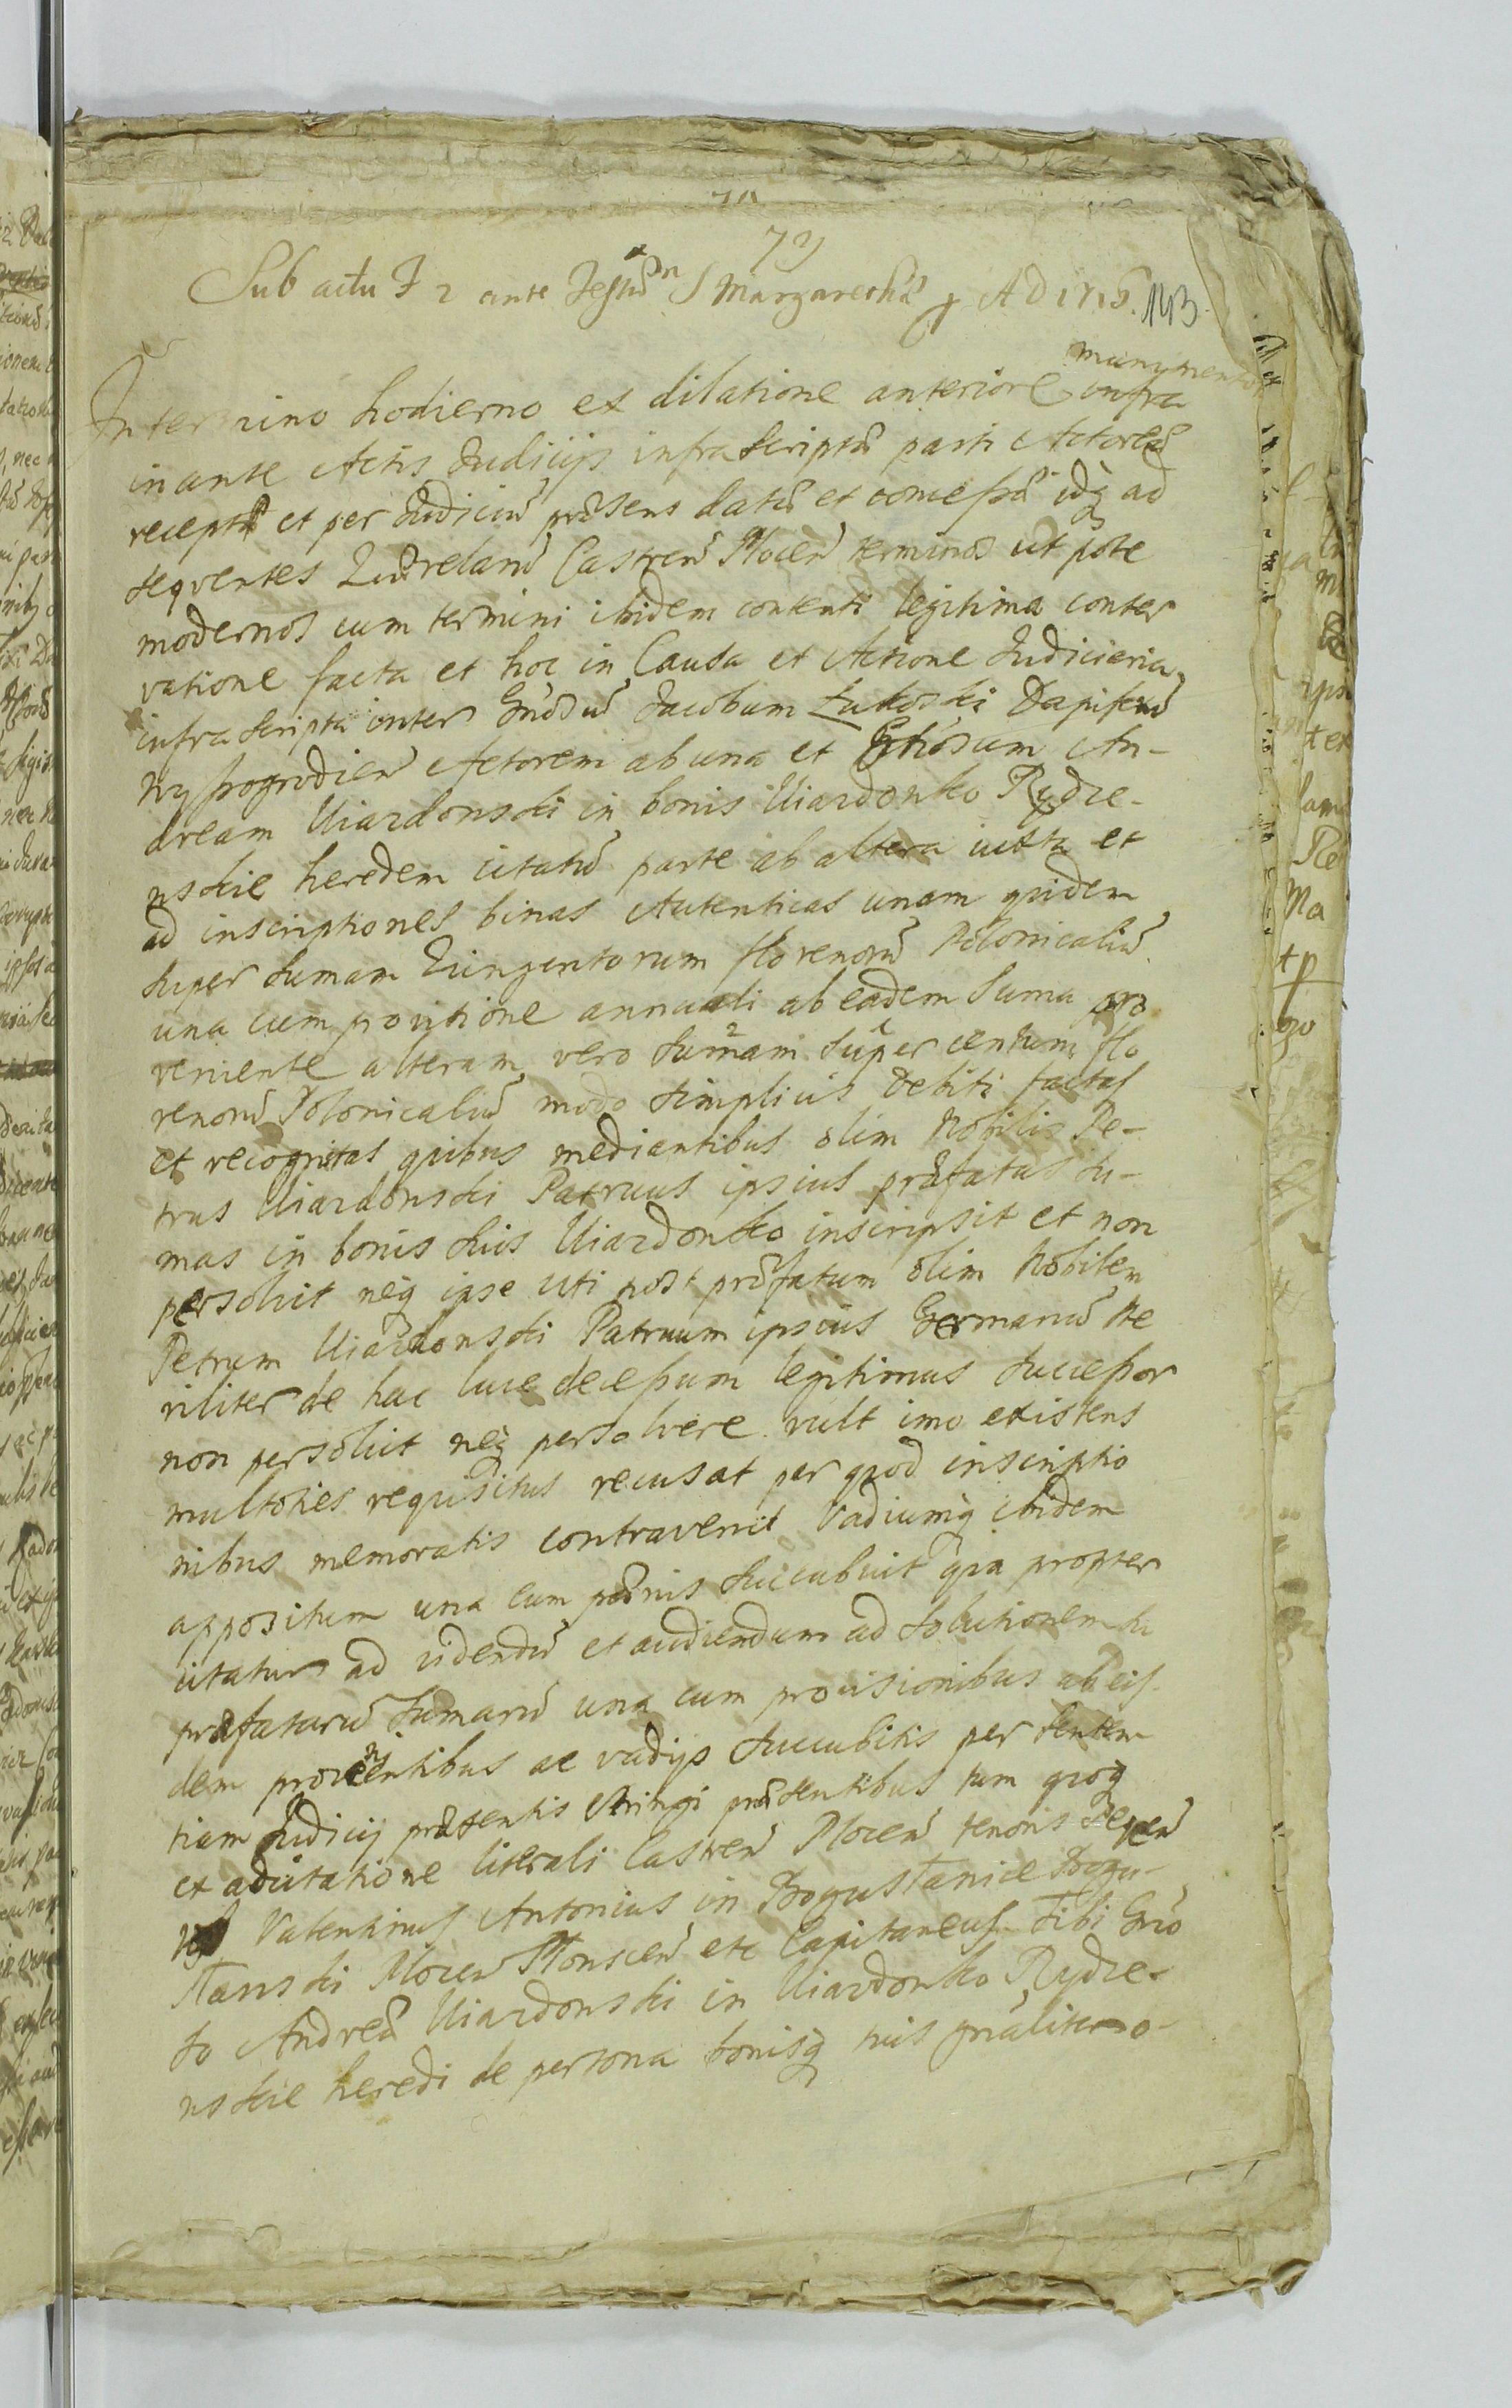 73
Sub actu F 2 ante Festū S Margarethæ A D 1715. 143
munymentor
In termino hodierno ex dilatione anteriore infra
in ante Actis Judicijs infra scriptū parti Actoreæ
recepta et per Judiciū præsens datū et concessū idq ad
sequentes Quærelarū Castreñ Ploceñ terminos ut pote
modernos cum termini ibidem contenti legitima conser
vatione facta et hoc in Causa et Actione Judiciaria
infra scripta inter Gnōsū Jacobum Łukoski Dapiferū
Wyssogrodieñ Actorem ab una et Gnōsum An-
dream Uiazdonski in bonis Uiazdowko Rydze-
wskie heredem citatū parte ab altera iuxta et
ad inscriptiones binas Autenticas unam quidem
super sumam Quingentorum florenorū Polonicaliū
una cum provitione annuali ab eadem suma pro
veniente alteram vero sumam super centum flo
renorū Polonicaliū modo simplicis Debiti factas
et recognitas quibus mediantibus olim Nobilis Pe-
trus Uiazdonski Patruus ipsius præfatas su-
mas in bonis suis Uiazdowko inscripsit et non
persoluit neq ipse uti post præfatum olim Nobilem
Petrum Uiazdonski Patruum ipsius Germanū ste
riliter de hac luce decessum legitimus successor
non persoluit neq persolvere vult imo existens
multoties requisitus recusat per quod inscriptio
nibus memoratis contravenit Vadiumq ibidem
appositum una cum pœnis succubuit qua propter
citatur ad videndū et audiendum ad solutionem
præfatarū sumarū una cum provisionibus ab eis
dem provenientibus ac vadijs succubitis per senten
tiam Judicij præsentis stringi præsentibus tum quoq
ex adcitatione literali Castreñ Ploceñ tenoris seqen
Valentinus Antonius in Bogusłanice Bogu-
słanski Ploceñ Płonsceñ etc Capitaneus Tibi Gnō
so Andreæ Uiazdonski in Uiazdowko Rydze-
wskie heredi de persona bonisq tuis gnāliter o-